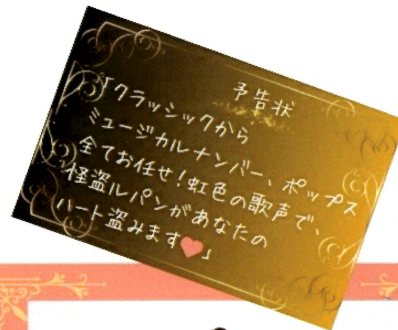 予告状
「クラッシックから
ミュージカルナンバー、ポップス
全てお任せ!虹色の歌声で、
怪盗ルパンがあなたの
ハート盗みます❤」